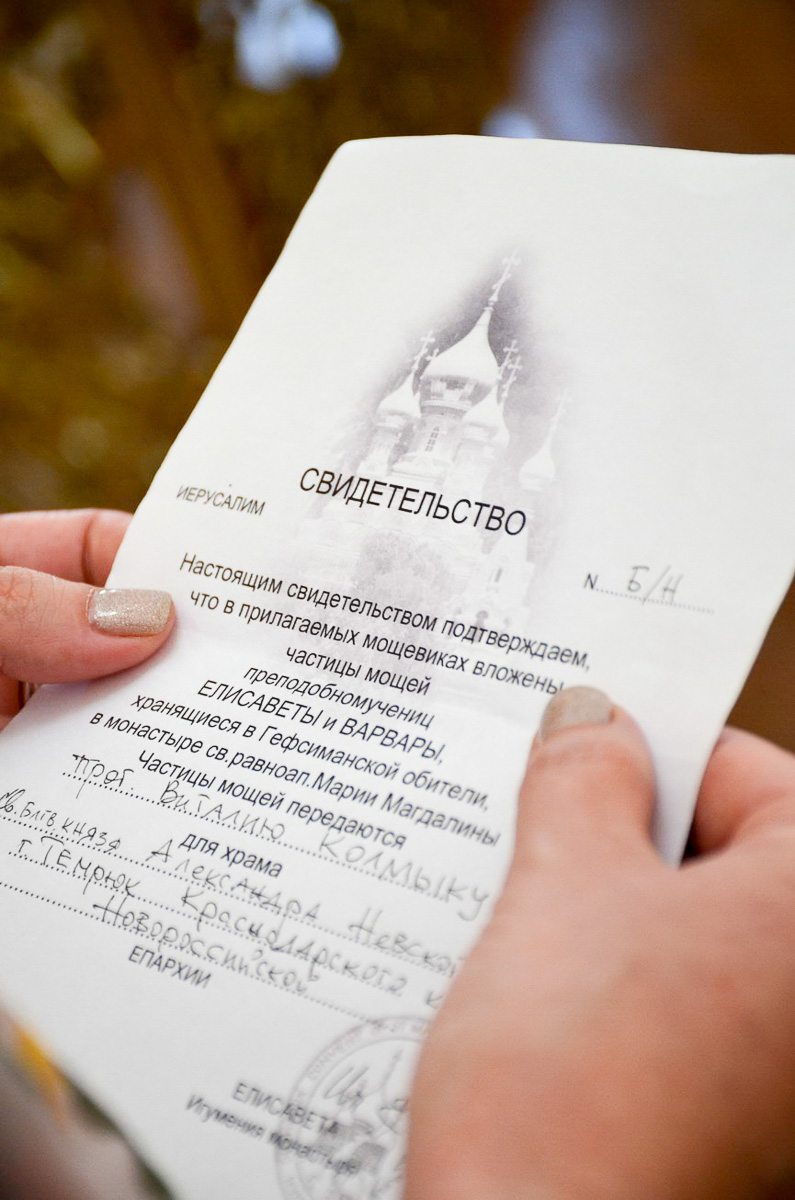 СВИДЕТЕЛЬСТВО
ИЕРУСАЛИМ
N. Б/Н
Настоящим свидетельством подтверждаем,
что в прилагаемых мощевиках вложены
частицы мощей
преподобномучениц
ЕЛИСАВЕТЫ и ВАРВАРЫ,
хранящиеся в Гефсиманской обители,
в монастыре св.равноап.Марии Магдалины
Частицы мощей передаются
прот. Виталию Колмыку
для храма
св. блгв. князя Александра Невского
г. Темрюк Краснодарского к
Новороссийской
ЕПАРХИИ
ЕЛИСАВЕТА
Игумения монастыря